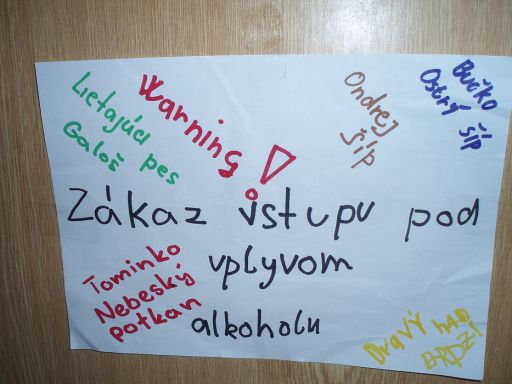 Lietajúci pes
Galoš
Warning!
Ondrej
šíp
Bučko
Ostrý šíp
Zákaz vstupu pod
vplyvom
alkoholu
Tominko
Nebeský
potkan
Dravý had
BRDZI